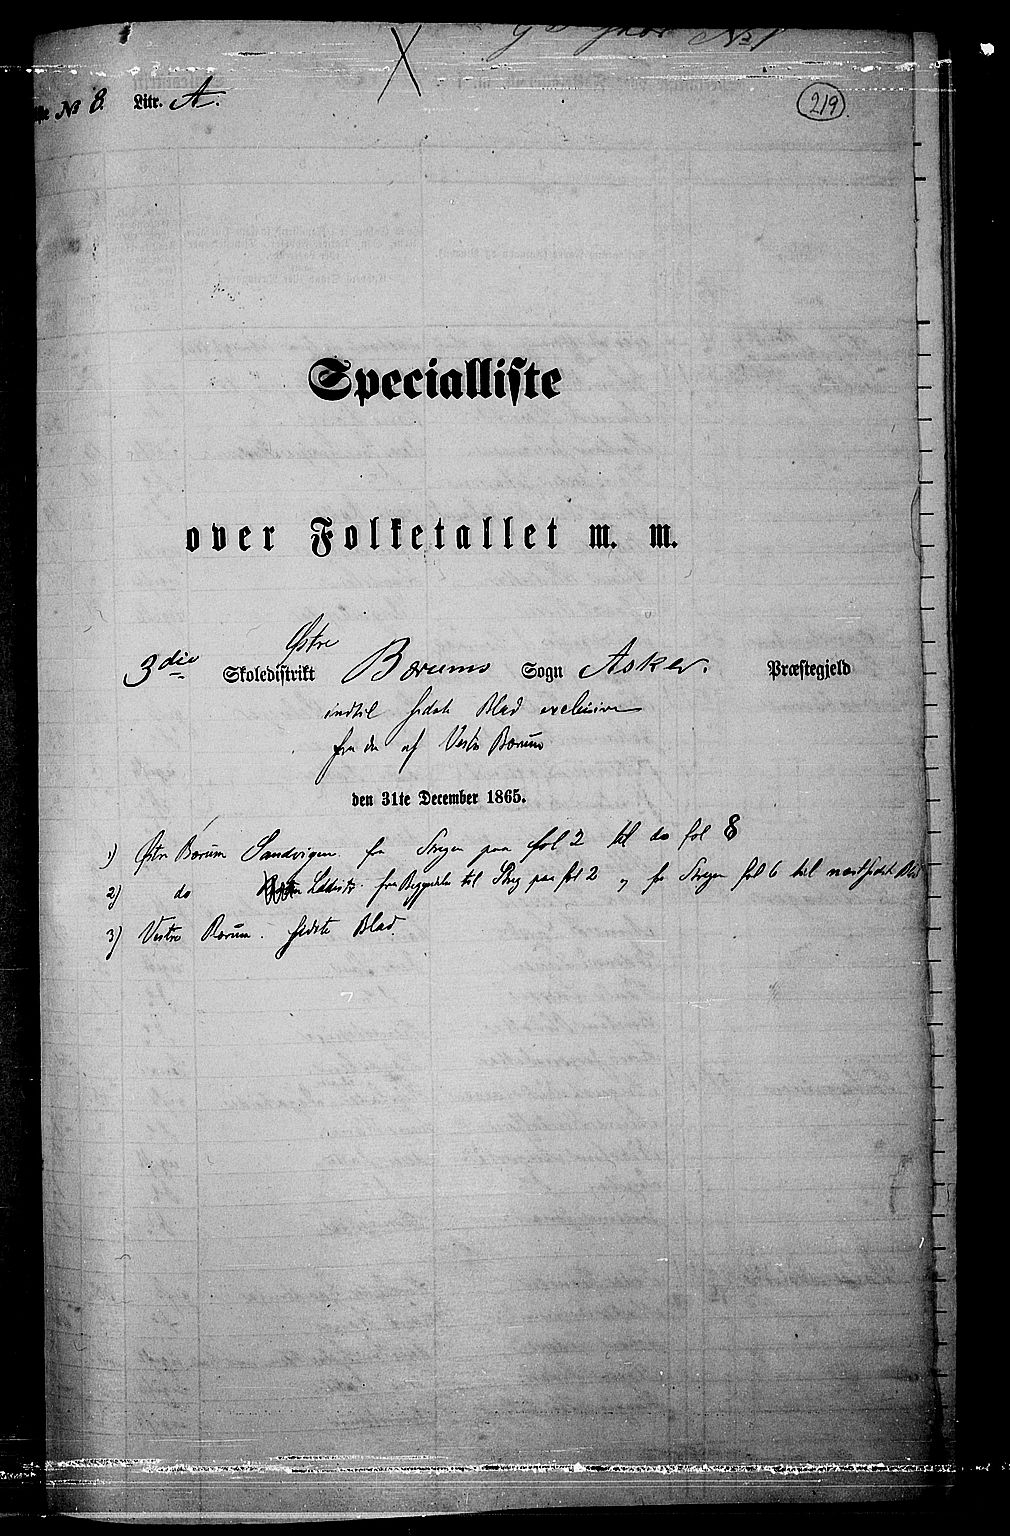 No 1
No 8. Litr. A.
219
Specialliste
over Folketallet m. m.
Østre
3die Skoledistrikt Bærums Sogn Asker. Præstegjeld
indtil sidste Blad exclusive
fra da af Vestre Bærum
den 31te December 1865.
1) Østre Bærum Sandvigen fra Stregen paa fol 2 til do fol 8
2) do fra Begyndelse til Streg paa fol 2 og fra Stregen fol 6 til næstsidste Blad
3) Vestre Bærum. sidste Blad